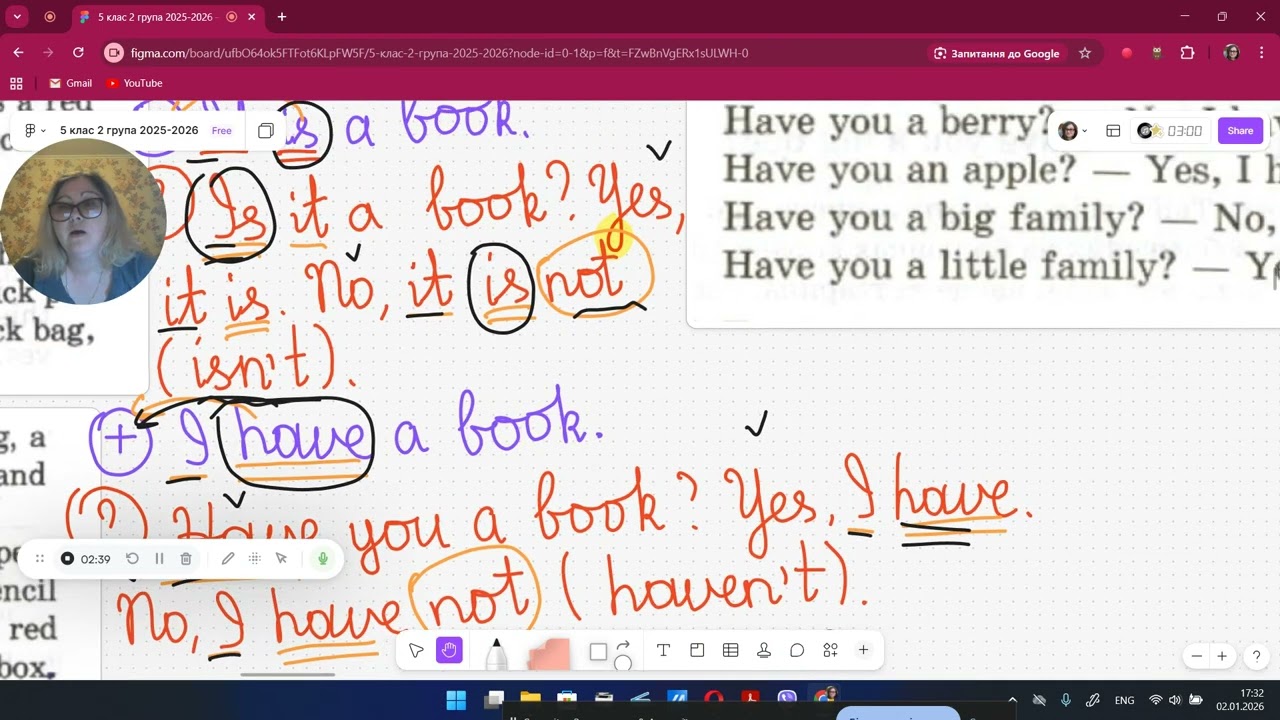 5 клас 2 група 2025-2026 -
figma.com/board/ufbO64ok5FTFot6KLpFW5F/5-клас-2-група-2025-2026?node-id=0-1&p=f&t=FZwBnVgERx1sULWH-0
Запитання до Google
Gmail
YouTube
5 клас 2 група 2025-2026 Free
03:00
Share
s a red
is a book.
Is it a book? Yes,
it is. No, it is not
(isn't).
ck bag,
+ I have a book.
? Have you a book? Yes, I have.
No, I have not (haven't).
g, a
and
encil
red
box,
Have you a berry?
Have you an apple? — Yes, I h
Have you a big family? — No,
Have you a little family? — Y
02:39
T
ENG
17:32
02.01.2026